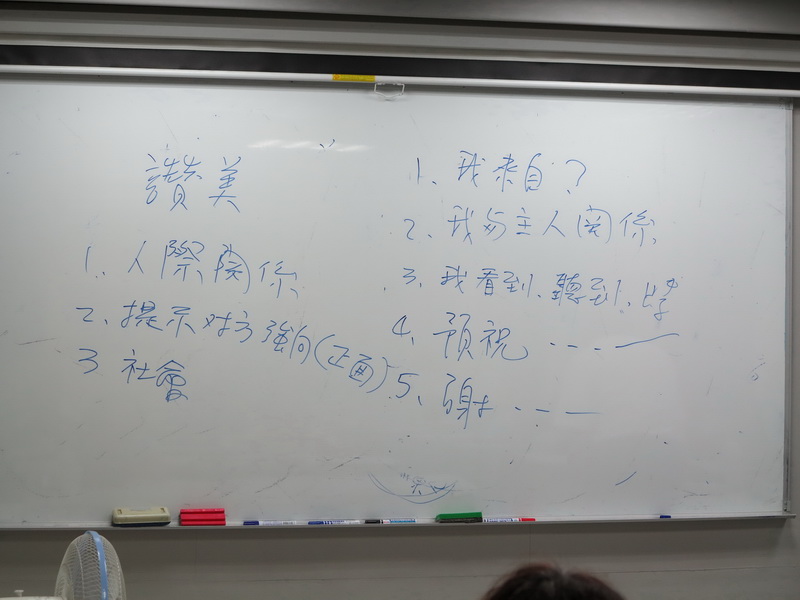 讚美
1. 人際関係
2. 提示对方強向(正面)
3 社會
1. 我来自?
2. 我与主人関係
3. 我看到、聽到、
4. 預祝 ...—
5. 謝 ..—